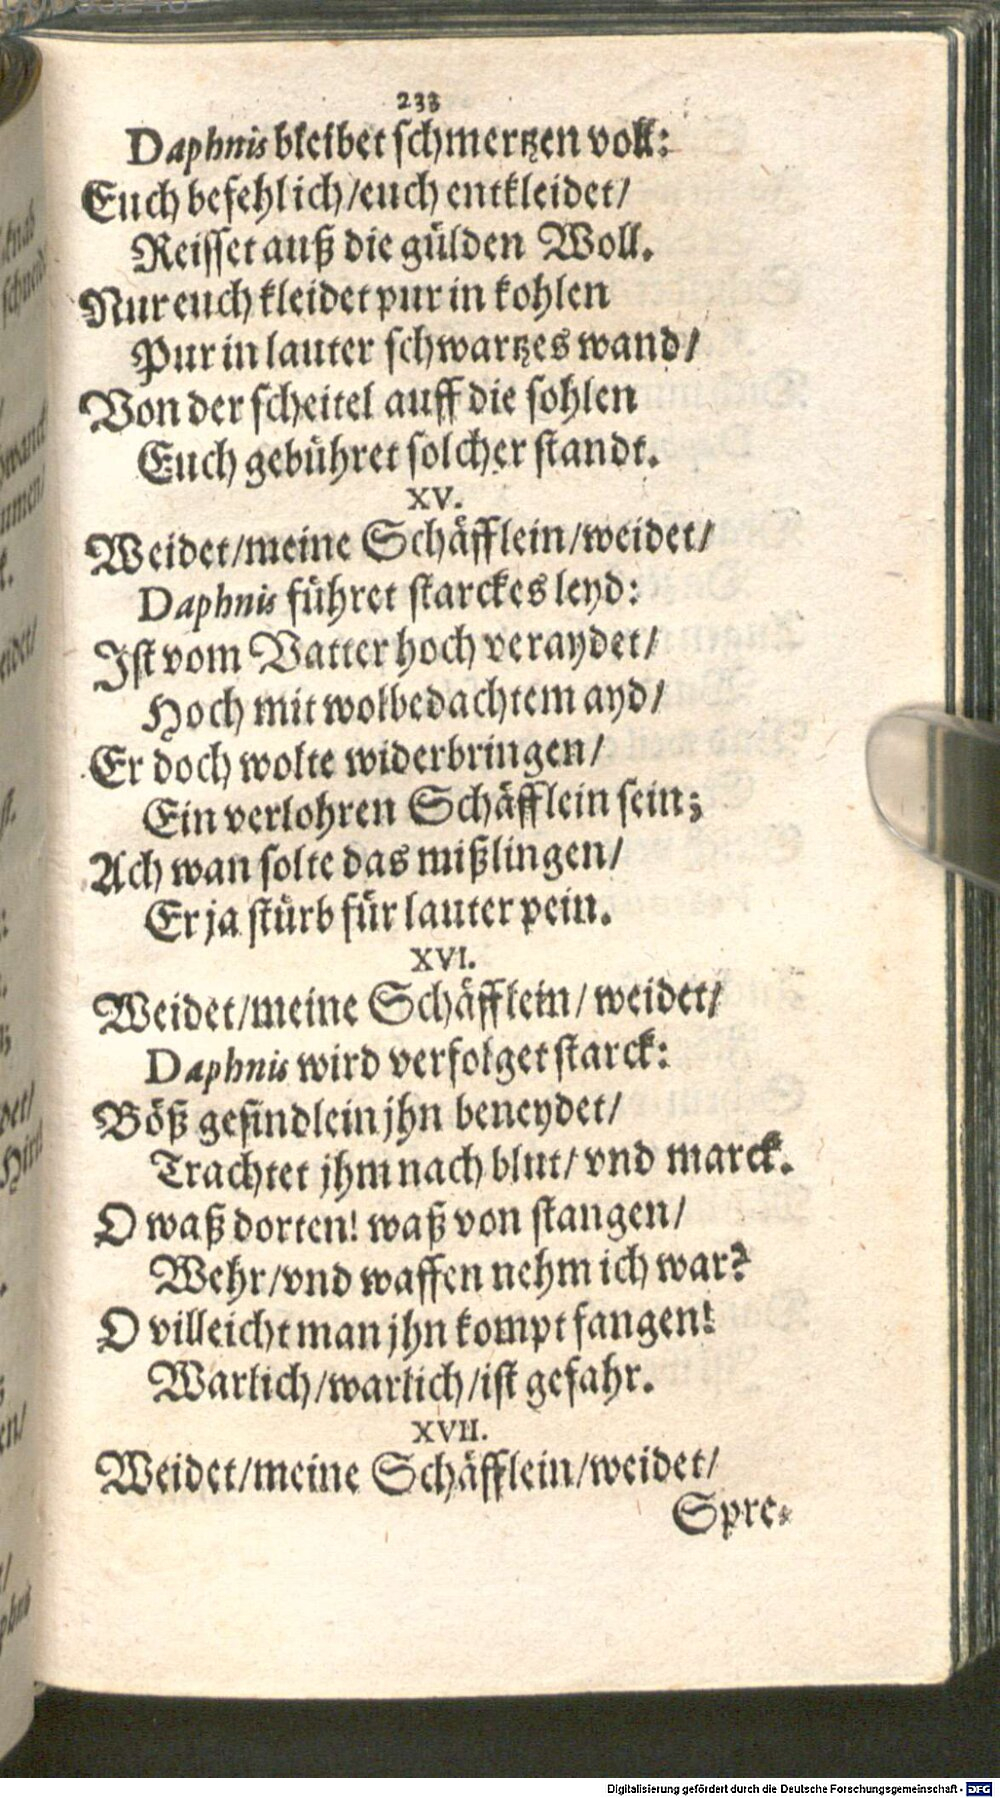 233
Daphnis bleibet schmertzen voll:
Euch befehl ich/euch entkleidet/
Reisset auß die gülden Woll.
Nur euch kleidet pur in kohlen
Pur in lauter schwartzes wand/
Von der scheitel auff die sohlen
Euch gebühret solcher standt.
XV.
Weidet/meine Schäfflein/weidet/
Daphnis führet starckes leyd:
Ist vom Vatter hoch veraydet/
Hoch mit wolbedachtem ayd/
Er doch wolte widerbringen/
Ein verlohren Schäfflein sein;
Ach wan solte das mißlingen/
Er ja stürb für lauter pein.
XVI.
Weidet/meine Schäfflein/weidet/
Daphnis wird verfolget starck:
Böß gesindlein jhn beneydet/
Trachtet jhm nach blut/vnd marck.
O waß dorten! waß von stangen/
Wehr/vnd waffen nehm ich war?
O villeicht man jhn kompt fangen!
Warlich/warlich/ist gefahr.
XVII.
Weidet/meine Schäfflein/weidet/
Spre-
Digitalisierung gefördert durch die Deutsche Forschungsgemeinschaft - DFG